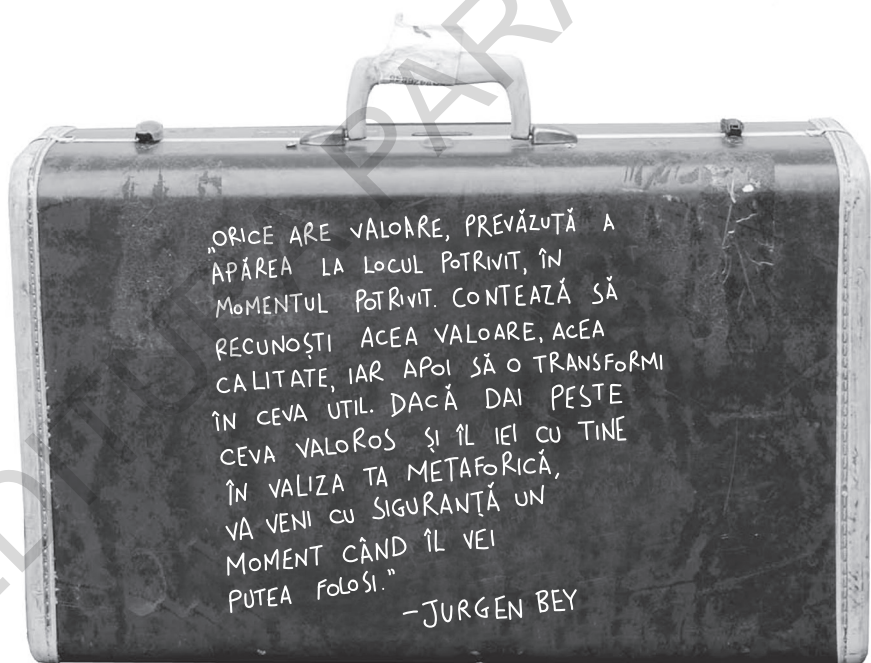 „ORICE ARE VALOARE, PREVĂZUTĂ A
APĂREA LA LOCUL POTRIVIT, ÎN
MOMENTUL POTRIVIT. CONTEAZĂ SĂ
RECUNOȘTI ACEA VALOARE, ACEA
CALITATE, IAR APOI SĂ O TRANSFORMI
ÎN CEVA UTIL. DACĂ DAI PESTE
CEVA VALOROS ȘI ÎL IEI CU TINE
ÎN VALIZA TA METAFORICĂ,
VA VENI CU SIGURANȚĂ UN
MOMENT CÂND ÎL VEI
PUTEA FOLOSI."
-JURGEN BEY